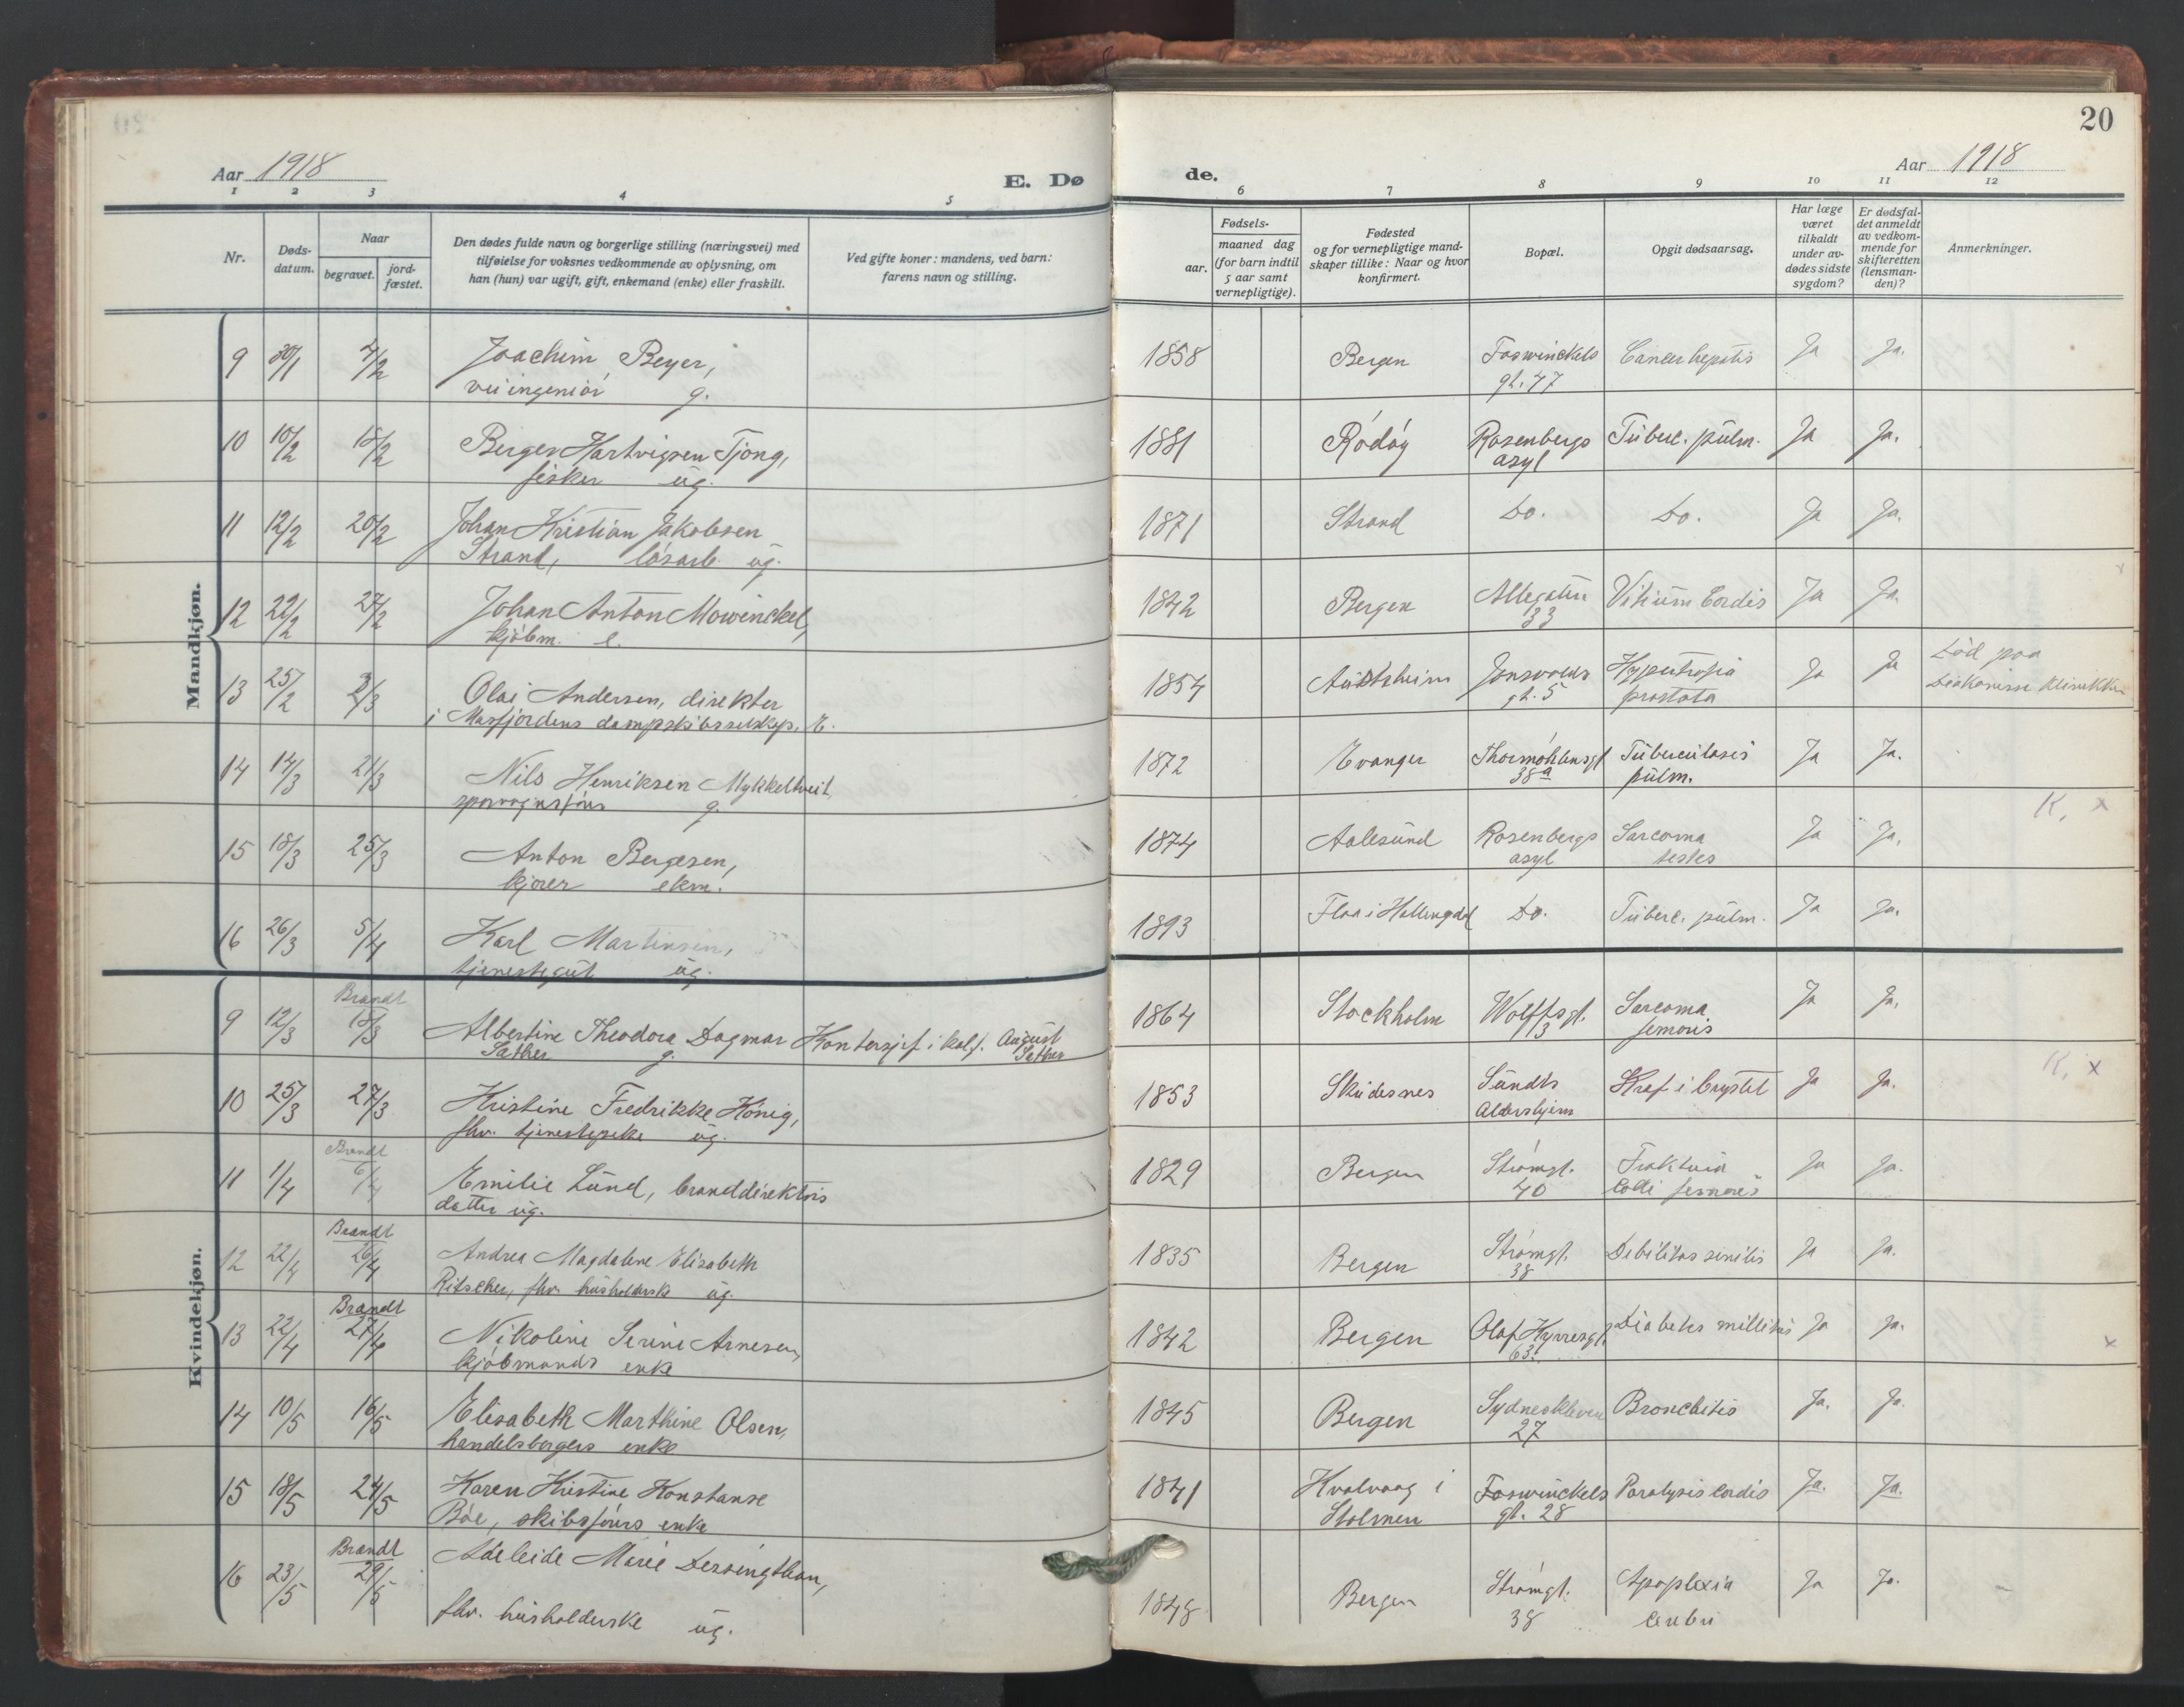 20
Aar 1918 E. Dø
de. Aar 1918
1 2 3 4 5
6 7 8 9 10 11 12
Nr. Døds-datum. Naar begravet. jord-fæstet.
Den dødes fulde navn og borgerlige stilling (næringsvei) med
tilføielse for voksnes vedkommende av oplysning, om
han (hun) var ugift, gift, enkemand (enke) eller fraskilt.
Ved gifte koner: mandens, ved barn:
farens navn og stilling.
Fødsels-
aar. maaned dag
(for barn indtil
5 aar samt
vernepligtige).
Fødested
og for vernepligtige mand-
skaper tillike: Naar og hvor
konfirmert.
Bopæl.
Opgit dødsaarsag.
Har læge
været
tilkaldt
under av-
dødes sidste
sygdom?
Er dødsfal-
det anmeldt
av vedkom-
mende for
skifteretten
(lensman-
den)?
Anmerkninger.
Mandkjøn.
9 30/1 4/2 Joachim Beyer, 1858 Bergen Foswinckels Cancer hepatis Ja Ja.
veiingeniør g. gt. 47
10 10/2 18/2 Berger Hartvigsen Tjong, 1881 Rødøy Rosenbergs Tuberc. pulm. Ja Ja.
fisker ug. asyl
11 12/2 20/2 Johan Kristian Jakobsen 1871 Strand Do. Do. Ja Ja.
Strand, løsarb. ug.
12 22/2 27/2 Johan Anton Mowinckel, 1842 Bergen Allegaten Vitium Cordis Ja Ja.
kjøbm. e. 33
13 25/2 3/3 Olai Andersen, direktør 1854 Austsheim Jonsvolds Hypertrofia Ja Ja Død paa
i Masfjordens dampskibsselskap, E. gt. 5 prostata Diakonisse klinikken
14 14/3 21/3 Nils Henriksen Mykkeltveit, 1872 Evanger Thormøhlensgt. Tuberculosis Ja Ja.
sporvognsfører g. 38a pulm.
K, x
15 18/3 25/3 Anton Bergesen, 1874 Aalesund Rosenbergs Sarcoma Ja Ja.
kjører ekm. asyl testes
16 26/3 5/4 Karl Martinsen, 1893 Flaa i Hallingdal Do. Tuberc. pulm. Ja Ja.
tjenestegut ug.
Kvindekjøn.
Brændt
9 12/3 18/3 Albertine Theodora Dagmar Kontorsjef i kolf. August 1864 Stockholm Wolffsgt. Sarcoma Ja Ja.
Sæther g. Sæther 3 femoris
K, x
10 25/3 27/3 Kristine Fredrikke Hönig, 1853 Skudesnes Sundts Kræf i brystet Ja Ja.
fhv. tjenestepike ug. Aldershjem
Brændt
11 1/4 6/4 Emilie Lund, branddirektørs 1829 Bergen Strømgt. Fraktura Ja Ja.
datter ug. 40 Colli femoris
Brændt
12 22/4 26/4 Andrea Magdalene Elisabeth 1835 Bergen Strømgt. Debilitas senilis Ja Ja.
Ritscher, fhv. husholdersk ug. 38
Brændt
13 22/4 27/4 Nikoline Serine Arnesen, 1842 Bergen Olaf Kyrresgt. Diabetes millitus Ja Ja.
kjøbmands enke 63. x
14 10/5 16/5 Elisabeth Marthine Olsen, 1845 Bergen Sydneskleven Bronchitis Ja. Ja.
handelsborgers enke 27
15 18/5 24/5 Karen Kristine Konstanse 1841 Hvalvaag i Foswinckels Paralysis Cordis Ja. Ja.
Bøe, skibsførers enke Stolmen gt. 28
Brændt
16 23/5 29/5 Adeleide Marie Dersingthon, 1848 Bergen Strømgt. Apoplexia Ja Ja.
fhv. husholderske ug. 38 Cerebri